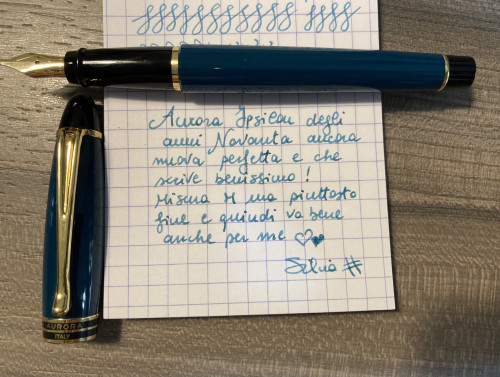 Aurora Ipsilon degli
anni Novanta ancora
nuova perfetta e che
scrive benissimo!
Misura M ma piuttosto
fine e quindi va bene
anche per me
Silvia #
AURORA
ITALY